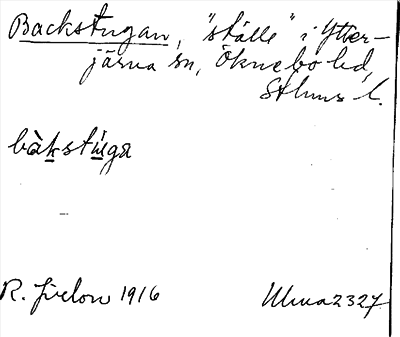 Backstugan, "ställe" i Ytter-
järna sn, Öknebo hd,
Sthlms l.
bàkstúga
R. Jirlow 1916
Ulma 2327